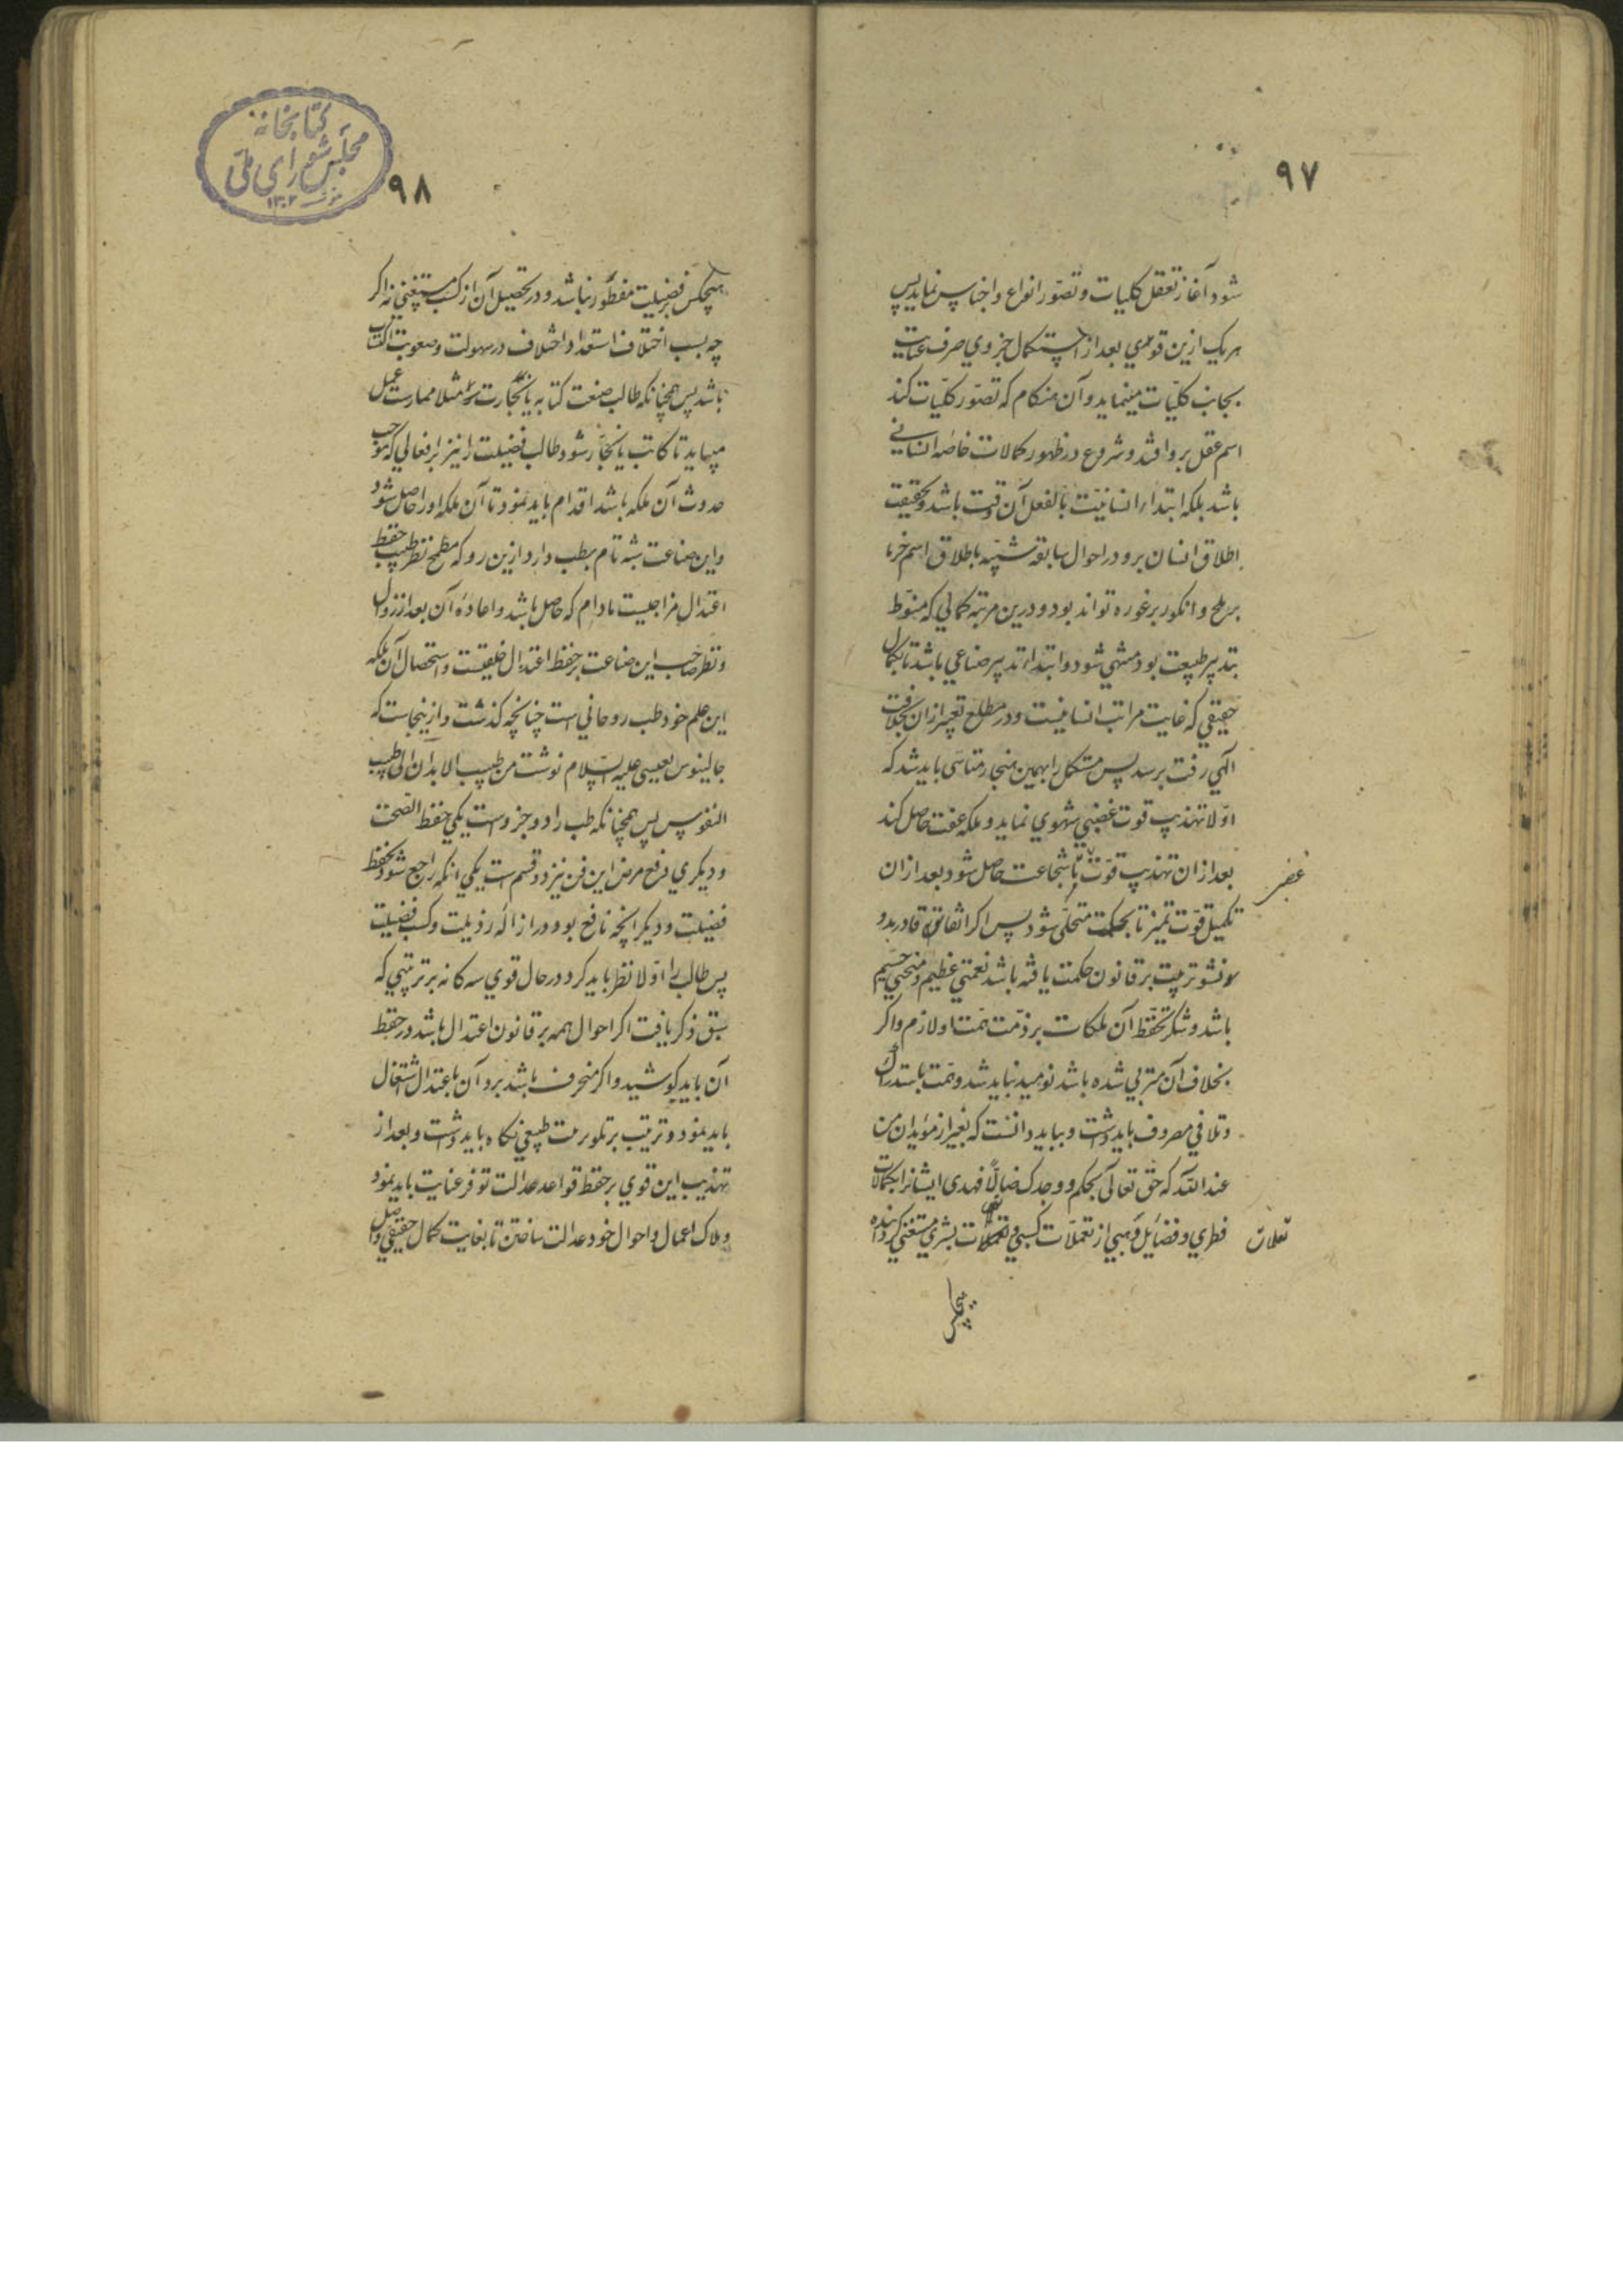 ۹۷
شود آغاز تعقل کلیات و تصور انواع و اجناس نماید پس
هر یک ازین قوی بعد از استکمال جزوی صرف عنایت
بجانب کلیات مینماید و آن هنکام که تصور کلیات کند
اسم عقل برو افتد و شروع در ظهور کمالات خاصه انسانی
باشد بلکه ابتداء انسانیت بالفعل آن وقت باشد و بحقیقت
اطلاق انسان برو در احوال سابقه شبیه باطلاق اسم خرما
بر طلح و انکور بر غوره تواند بود و درین مرتبه کمالی که منوط
بتدبیر طبیعت بود منتهی شود و ابتداء تدبیر صناعی باشد تا بکمال
حقیقی که غایت مراتب انسانیست و در مطلع تعبیر ازان بخلافت
الهی رفت برسد پس مستکمل را بهمین هنجار متاسی باید شد که
اولا تهذیب قوت غضبی شهوی نماید و ملکه عفت حاصل کند
بعد ازان تهذیب قوت تا شجاعت حاصل شود بعد ازان
غضبی
تکمیل قوت تمیز تا بحکمت متحلی شود پس اکر اتفاق قادر بدو
نشو تربیت بر قانون حکمت یافته باشد نعمتی عظیم و منحتی جسیم
باشد و شکر تحفظ آن ملکات بر ذمت همت او لازم و اکر
بخلاف آن متربی شده باشد نومید نباید شد و همت باستدراک
و تلافی مصروف باید داشت و بباید دانست که بغیر از مویدان من
عند الله که حق تعالی بحکم و وجدک ضالا فهدی ایشانرا بکمالات
فطری و فضایل وهبی از تعملات کسبی و تعملات بشری مستغنی کردانیده
تعملات
هیچکس
۹۸
کتابخانه
مجلس شورای ملی
۱۳۰۲
هیچکس بر فضیلت مفطور نباشد و در تحصیل آن از کسب مستغنی نه اکر
چه بسبب اختلاف استعداد اختلاف در سهولت و صعوبت اکتساب
باشد پس همچنانکه طالب صنعت کتابه یا نجارت مثلا ممارست عمل
میباید تا کاتب یا نجار شود طالب فضیلت را نیز بر افعالی که موجب
حدوث آن ملکه باشد اقدام باید نمود تا آن ملکه او را حاصل شود
و این صناعت شبه تام بطب دارد ازین رو که مطمح نظر طبیب حفظ
اعتدال مزاجیست مادام که حاصل باشد و اعاده آن بعد از زوال
و نظر صاحب این صناعت بر حفظ اعتدال خلقیست و استحصال آن بلکه
این علم خود طب روحانی است چنانچه کذشت و ازینجاست که
جالینوس بعیسی علیه السلام نوشت من طبیب الابدان الی طبیب
النفوس پس همچنانکه طب را دو جزوست یکی حفظ الصحت
و دیکری دفع مرض این فن نیز دو قسم است یکی انکه راجع شود بحفظ
فضیلت و دیکر انچه نافع بود در ازاله رذیلت و کسب فضیلت
پس طالب را اولا نظر باید کرد در حال قوی سه کانه بر ترتیبی که
سبق ذکر یافت اکر احوال همه بر قانون اعتدال باشد در حفظ
آن باید کوشید و اکر منحرف باشد برد آن باعتدال اشتغال
باید نمود و ترتیب بر تلو مرمت طبیعی نکاه باید داشت و بعد از
تهذیب این قوی بر حفظ قواعد عدالت توفر عنایت باید نمود
و ملاک اعمال و احوال خود عدالت ساختن تا بغایت کمال حقیقی واصل